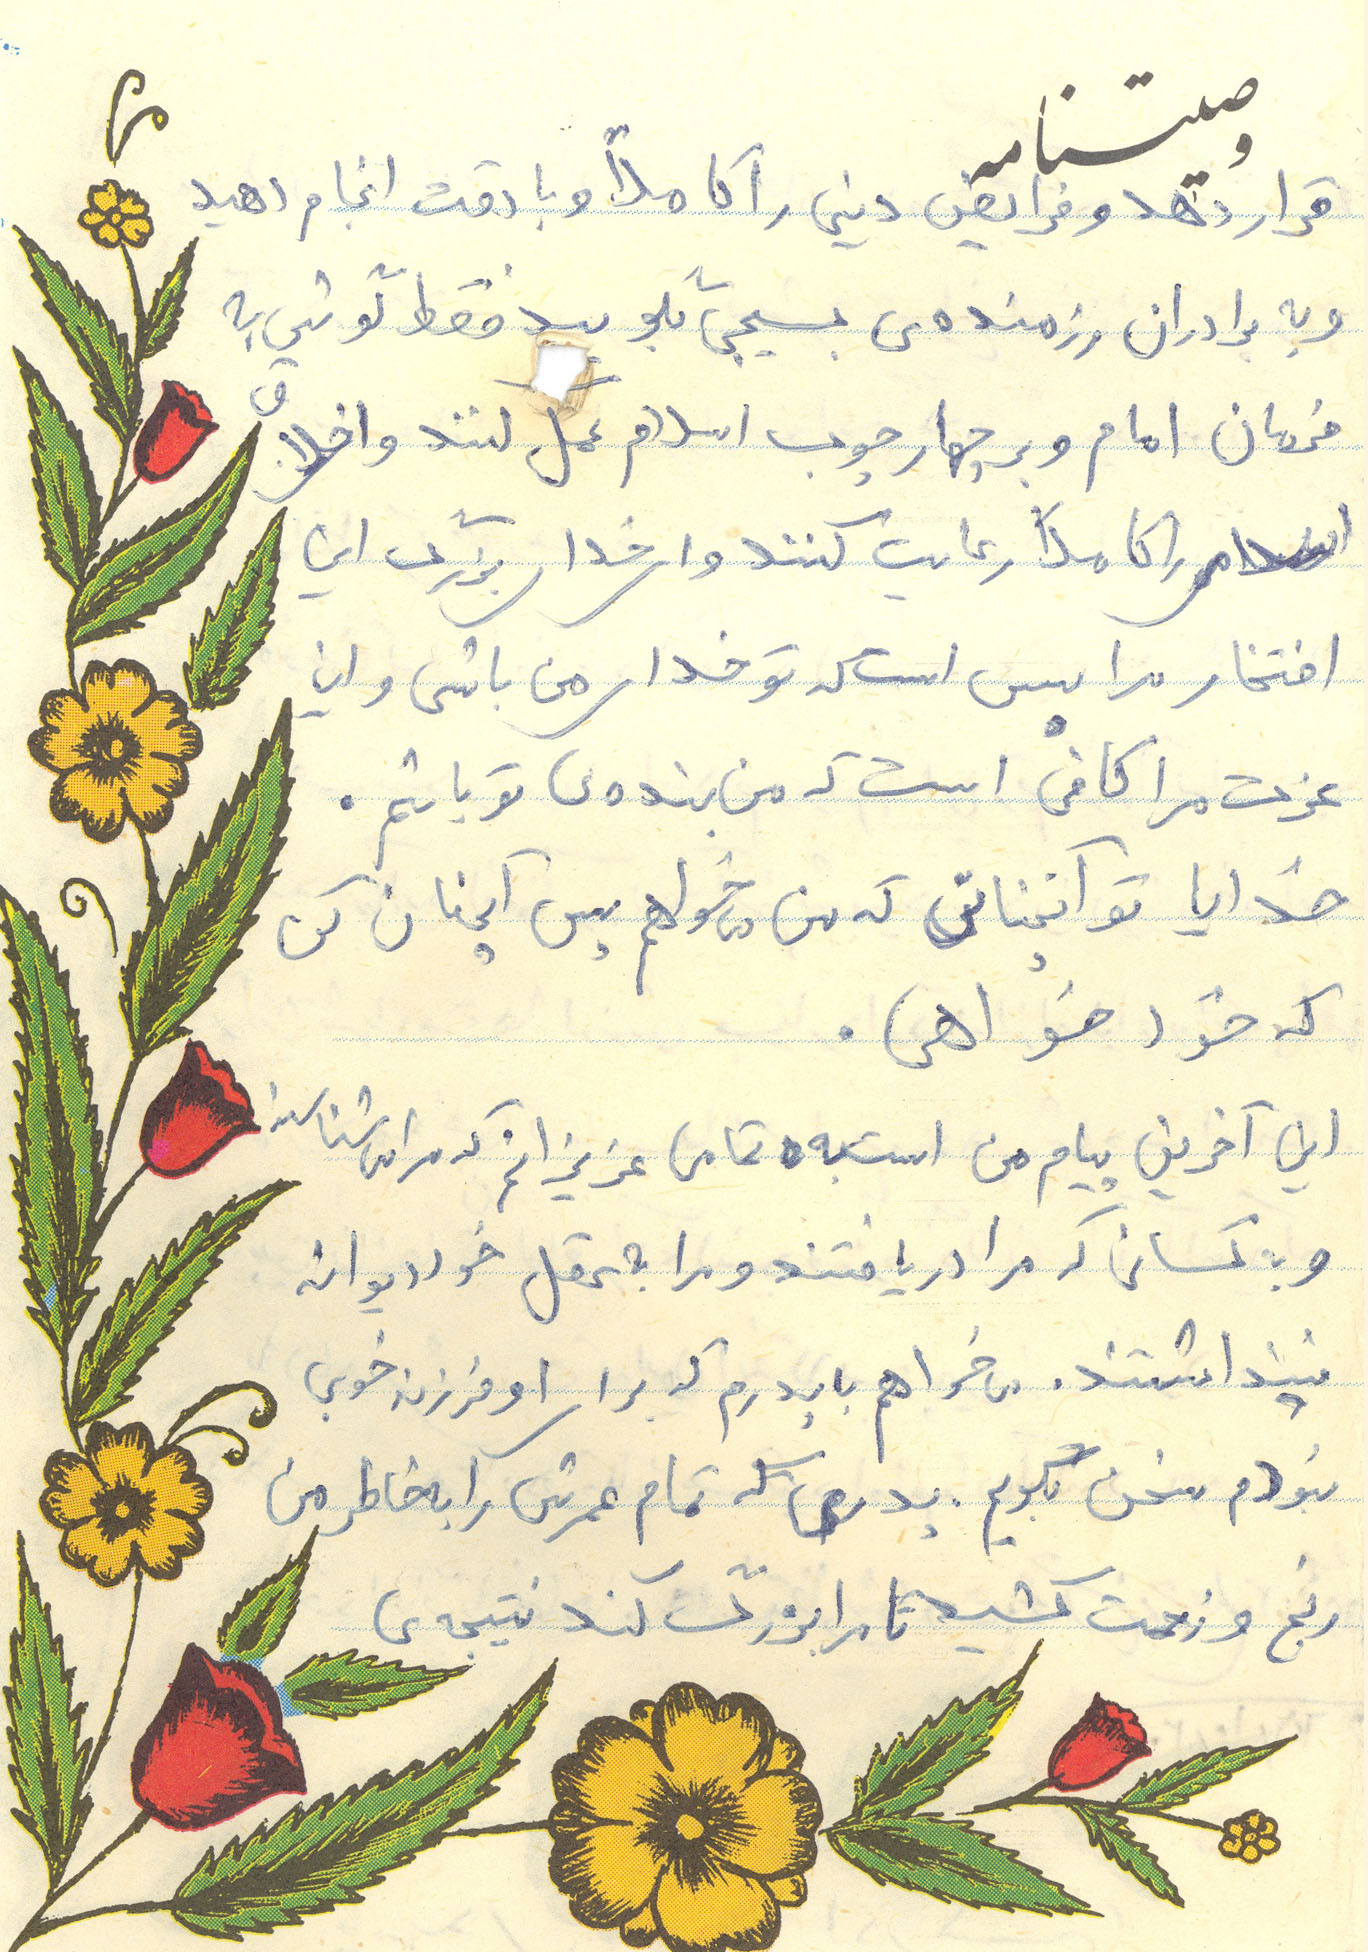 وصیتنامه
قرار دهد و فرایض دینی را کاملاً و با دقت انجام دهید
و به برادران رزمنده‌ی بسیجی بگویید فقط گوش به
فرمان امام و بر چهارچوب اسلام عمل کنند و اخلاق
اسلام را کاملاً رعایت کنند و ای خدای بزرگ این
افتخار مرا بس است که تو خدای من باشی و این
عزت مرا کافی است که من بنده‌ی تو باشم.
خدایا تو آنچنانی که من میخواهم پس آنچنان کن
که خود خواهی.
این آخرین پیام من است به تمامی عزیزانم که مرا می‌شناسند
و به کسانی که مرا دریافتند و مرا به عقل خود دیوانه
پنداشتند. می‌خواهم با پدرم که برای او فرزند خوبی
نبودم سخن بگویم. پدری که تمام عمرش را به خاطر من
رنج و زحمت کشید تا مرا بزرگ کند نتیجه‌ی